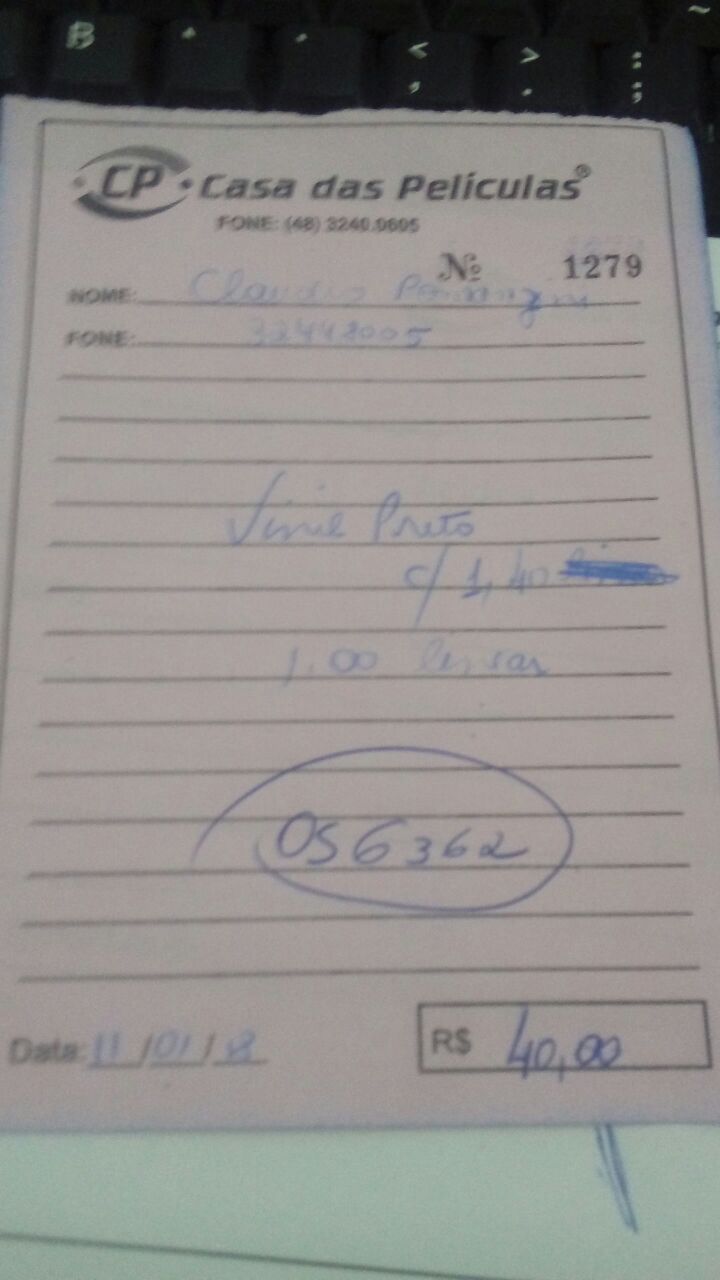 CP Casa das Películas®
FONE: (48) 3240.0605
Nº 1279
NOME: Claudio
FONE: 32448005
Vinil Preto
c/ 1,40
1.00
OS 6362
Data: 11/01/18
R$ 40,00
B
< ,
> .
: ;
~